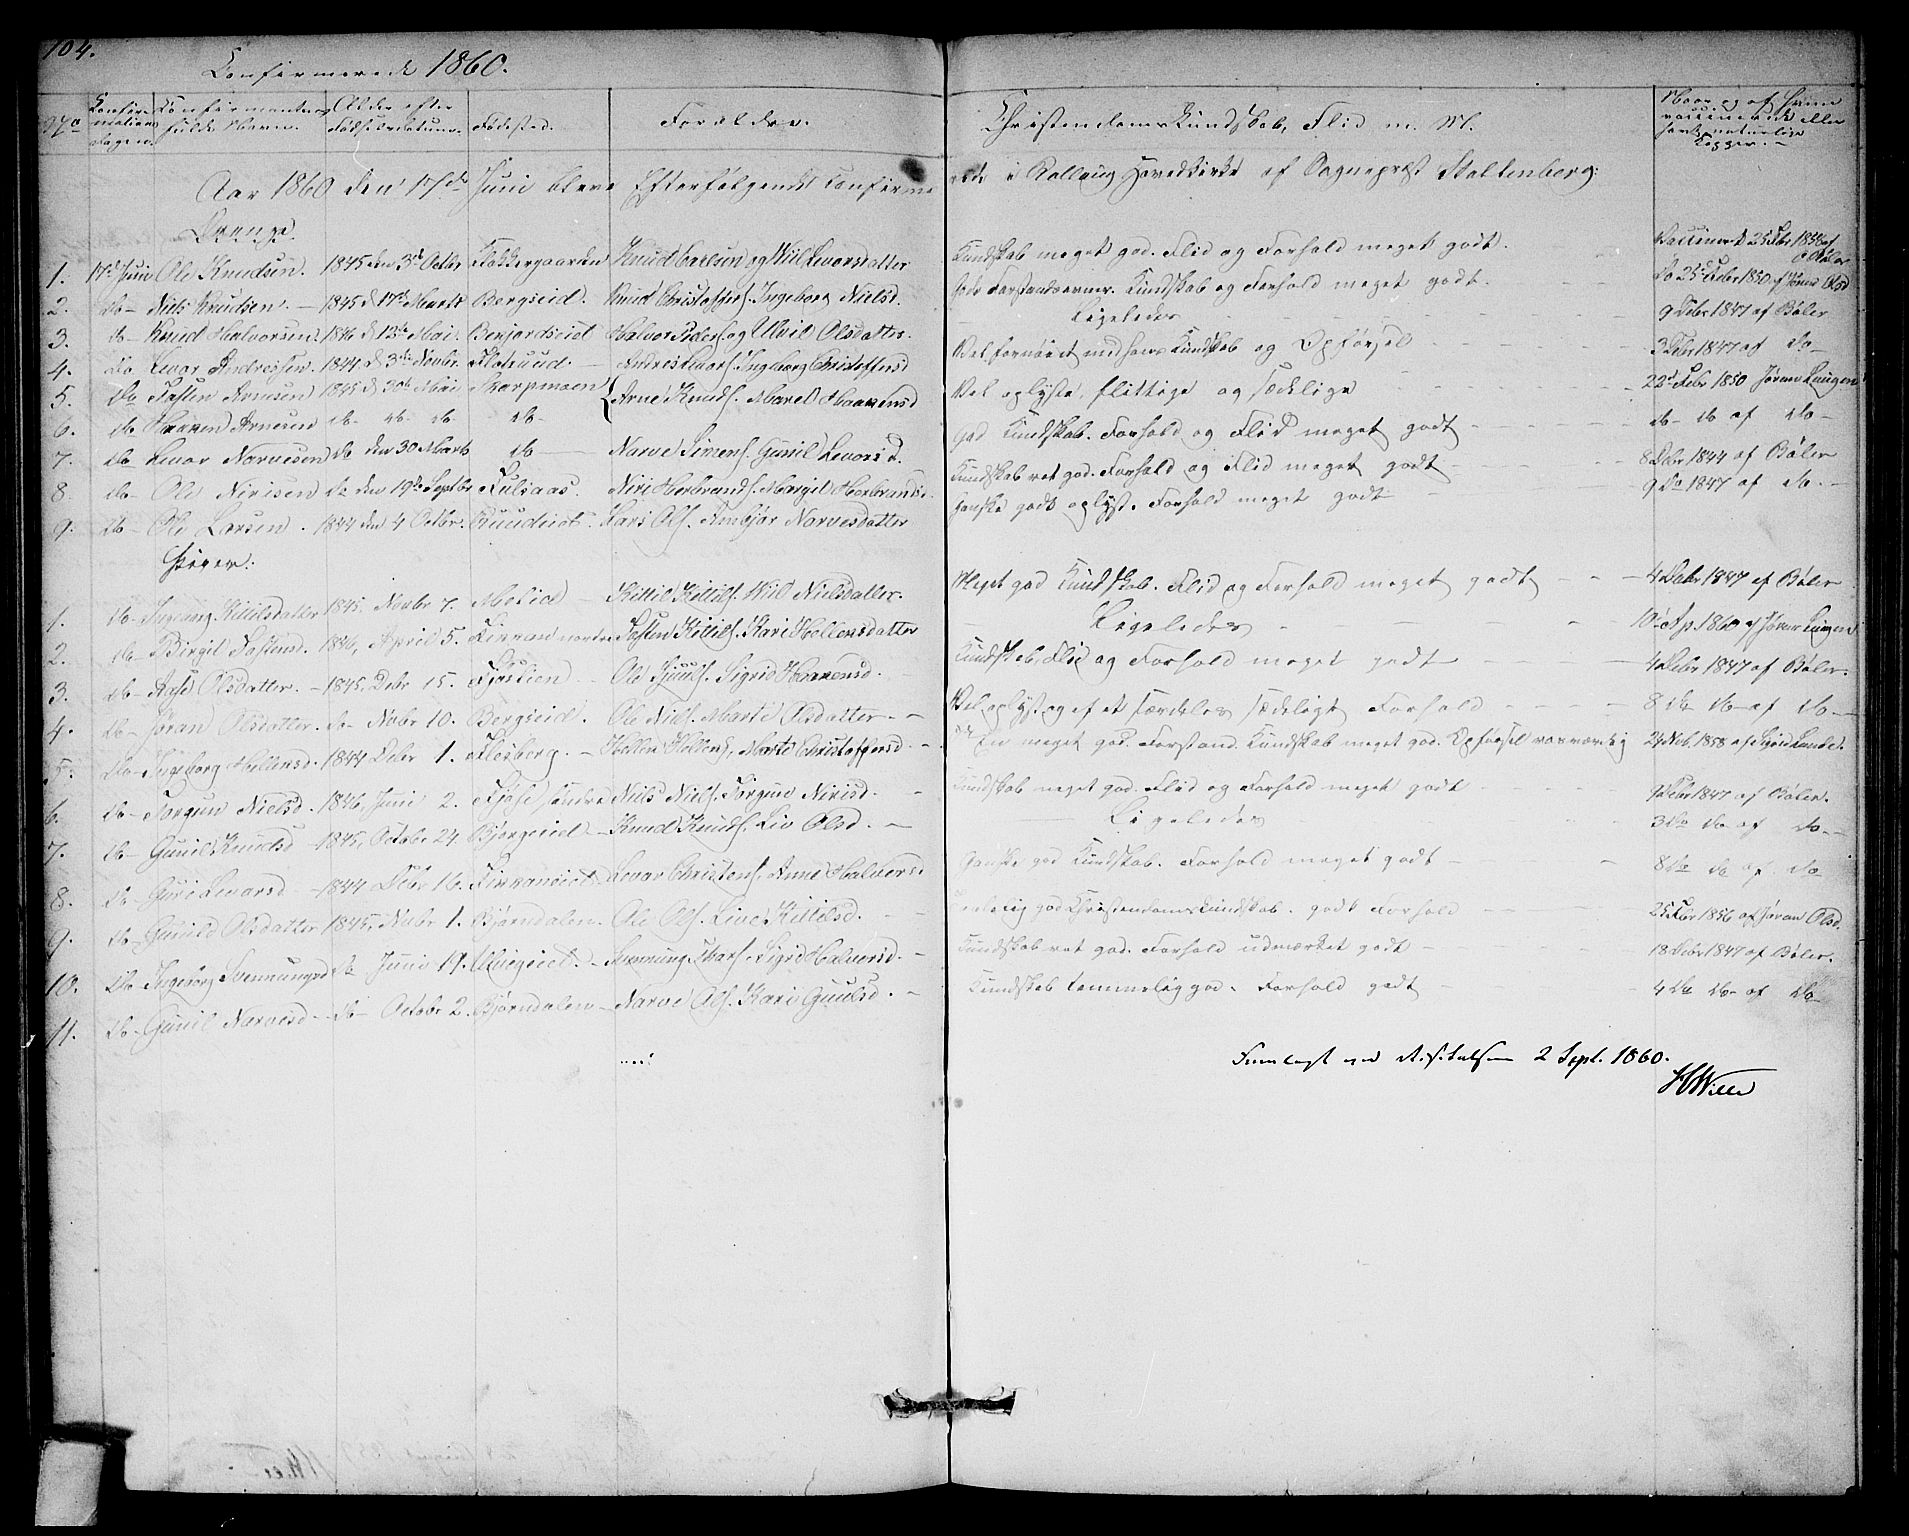 104.
Confirmerede 1860.
No Confirmations Dagen. Confirmantens fulde Navn. Alder efter Fødselsdatum. Fødested. Forældre. Christendomskundskab, Flid m. M. Naar og af hvem vaccinerede eller havt naturlige Kopper.
Aar 1860 den 17de Juni bleve Efterfølgende Confirmerede i Rollaug Hovedkirke af Sognepræst Stoltenberg:
Drenge.
1. 17d Juni Ole Knudsen. 1845 den 3d Octbr Knud Carlsen og Wiil Levorsdatter Kundskab meget god. Flid og Forhold meget godt. Vaccineret 25 Fbr 1856 af
2. do Niels Knudsen. 1845 d 17d Marts Bergseid. Knud Christoffers. Ingeborg Nielsd. Kundskab og Forhold meget godt. do 25 Febr 1850 af Jøran Olsd
3. do Knud Halvorsen. 1846 d 13de Mai. Benjordseiet Halvor Peders. og Ulvil Olsdatter. Ligeledes 9 Debr 1847 af Bøler
4. do Levor Andressen. 1844 d 3die Novbr. Flatruud Andres Levors. Ingeborg Christoffersd Vel fornøiet med hans Kundskab og Opførsel 3 Debr 1847 af do
5. do Tosten Arnesen 1845 d 30te Mai Skarpmoen Arne Knuds. Marel Haavensd Vel oplyste, flittige og sædelige 22d Febr 1850 Jøran Langen
6. do Haaven Arnesen do. do. do do. God Kundskab. Forhold og Flid meget godt do do af do
7. do Levor Narvesen do den 30 Marts do Narve Simens. Gunil Levorsd. Kundskab ret god. Forhold og Flid meget godt 8 Debr 1844 af Bøler
8. do Ole Nirisen do den 19de Septbr Juliaas. Niri Herbrands. Margit Herbrandsd. Ganske godt oplyst. Forhold meget godt 9 do 1847 af do.
9. do Ole Larsen. 1844 den 4 Octbr. Ruudeiet Lars Ols. Ambjør Narvesdatter
Piger.
1. do Ingeborg Kittilsdatter 1845, Novbr 7. Moeid Kittil Kittils. Wiil Nielsdatter. Meget god Kundskab. Flid og Forhold meget godt 4 Debr 1847 af Bøler
2. do Birgit Tostensd. 1846, April 5. nordre Tosten Kittils. Kari Hellensdatter Ligeledes 10 Ap. 1860 af Jøran Langen
3. do Aase Olsdatter. 1845, Debr 15. Fjøslien Ole Gjuuls. Sigrid Haavensd. Kundskab, Flid og Forhold meget godt 4 Debr 1847 af Bøler.
4. do Jøran Olsdatter. do Novbr 10. Bergseid. Ole Niels. Marte Olsdatter. Vel oplyst og af et særdeles sædeligt Forhold 8 do do af do.
5. do Ingeborg Hellensd. 1844 Debr 1. Flesberg. Hellen Hellens. Marte Christoffersd. En meget god Forstand. Kundskab meget god. Opførsel rosværdig 24 Nvb. 1858 af Sigrid Lande.
6. do Torgun Nielsd. 1846, Juni 2. Fjøse søndre Niels Niels. Torgun Nirisd. Kundskab meget god. Flid og Forhold meget godt 9 Debr 1847 af Bøler.
7. do Gunil Knudsd 1845, Octobr 24. Bjørgeeiet Knud Knuds. Liv Olsd. Ligeledes 3 do do af do.
8. do Guri Levorsd 1844 Debr 16. Levor Christens. Anne Halvorsd Ganske god Kundskab. Forhold meget godt 8 do do af do
9. do Gunild Olsdatter 1845, Nvbr 1. Bjørndalen. Ole Ols. Live Kittilsd. god Christendomskundskab. godt Forhold 25 Fbr 1856 af Jøran Olsd.
10. do Ingeborg Svenningsd do Juni 19. Svenning Ivars. Sigrid Halvorsd. Kundskab ret god. Forhold udmærket godt 18 Debr 1847 af Bøler.
11. do Gunil Narvesd. do Octobr 2. Bjørndalen Narve Ols. Kari Guulsd. Kundskab temmelig god. Forhold godt 4 do do af do
Fremlagt ved Visitatsen 2 Sept. 1860.
HWille